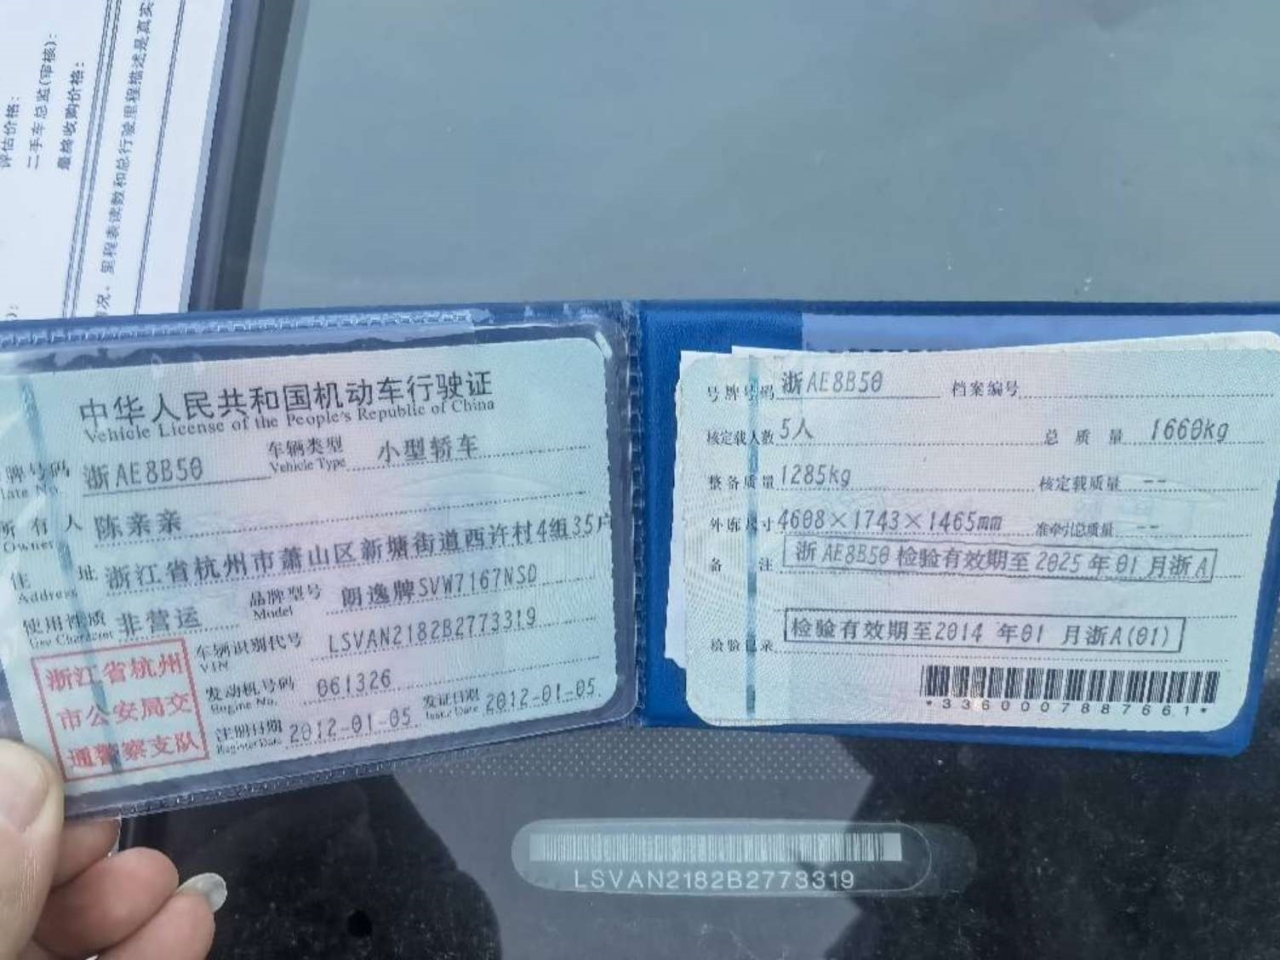 评估价格：
二手车总监(审核)：
最终收购价格：
况。里程表读数和总行驶里程描述是真实
中华人民共和国机动车行驶证
Vehicle License of the People's Republic of China
牌号码 浙AE8B50 车辆类型 小型轿车
late No. Vehicle Type
所有人 陈亲亲
Owner
住 址 浙江省杭州市萧山区新塘街道西许村4组35户
Address
使用性质 非营运 品牌型号 朗逸牌SVW7167NSD
Use Character Model
车辆识别代号 LSVAN2182B2773319
VIN
发动机号码 061326
Engine No.
注册日期 2012-01-05 发证日期 2012-01-05
Register Date Issue Date
浙江省杭州
市公安局交
通警察支队
号牌号码 浙AE8B50 档案编号
核定载人数 5人 总质量 1660kg
整备质量 1285kg 核定载质量 --
外廓尺寸 4608×1743×1465mm 准牵引总质量 --
备 注 浙AE8B50检验有效期至2025年01月浙A
检验记录 检验有效期至2014年01月浙A(01)
*3360007887661*
LSVAN2182B2773319